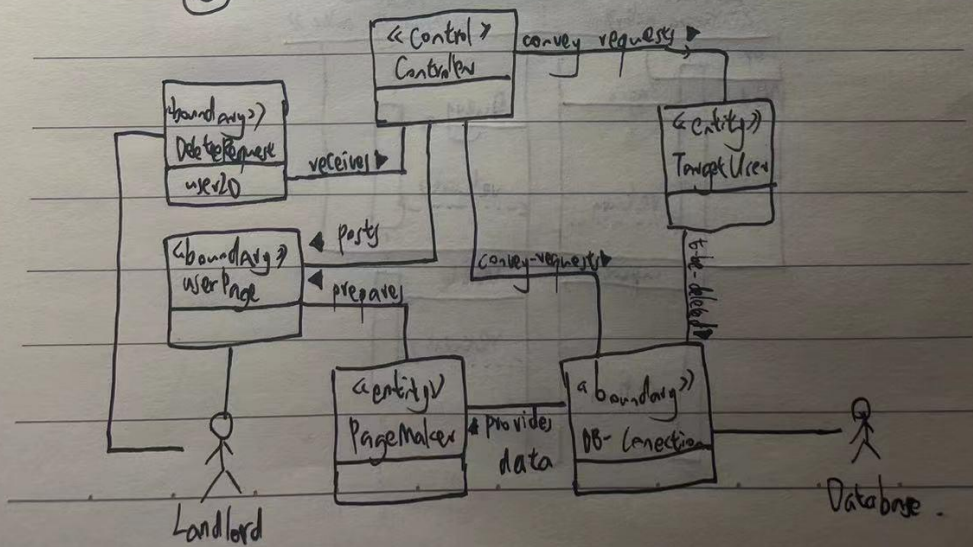 <<Control>
Controller
convey requests
<boundary>>
DeleteRequest
userID
receives
<<Entity>>
TargetUser
<<boundary>>
userPage
posts
prepares
convey-requests
t-be-deleted
<<entity>>
PageMaker
provides
data
<<boundary>>
DB-Conection
Landlord
Database.